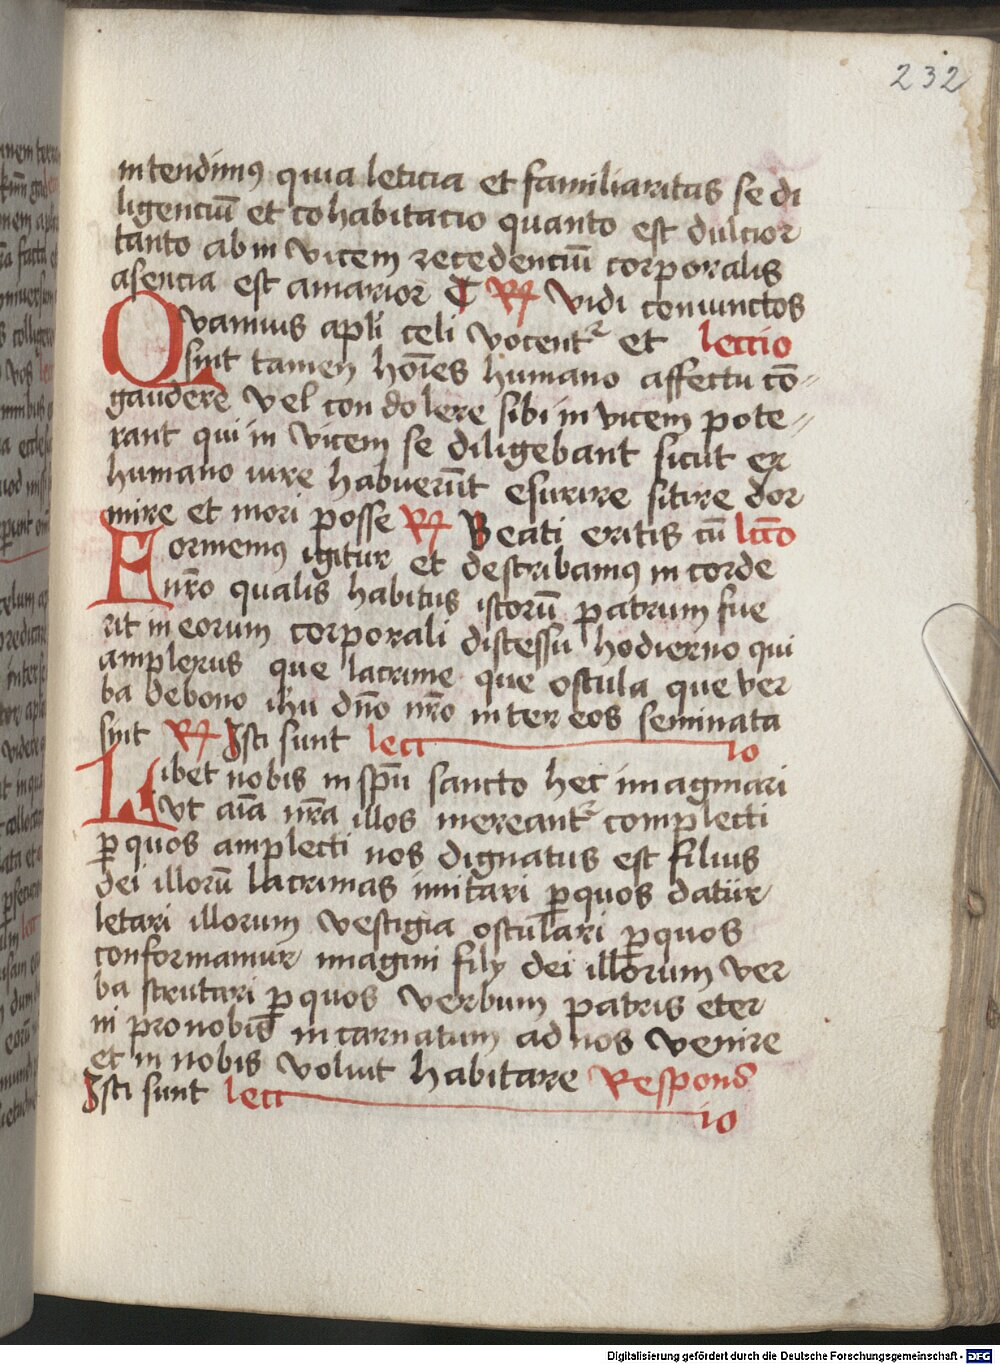 232
intendimus quia leticia et familiaritas se di
ligenciū et cohabitacio quanto est dulcior
tanto ab in vicem recedenciū corporalis
asencia est amarior ₵ R̷ Vidi coniunctos
Quamuis apl̄i celi vocent᷑ et lectio
sint tamen hoīes humano affectu cō=
gaudere vel condolere sibi in vicem pote=
rant qui in vicem se diligebant sicut ex
humano iure habuerūt esurire sitire dor
mire et mori posse R̷ Beati eritis cū lcc̄o
Formemus igitur et describamus in corde
nr̄o qualis habitus istorū patrum fue
rit in eorum corporali discessu hodierno qui
amplexus que lacrime que oscula que ver
ba de bono ih̄u dn̄o nr̄o inter eos seminata
sint R̷ Isti sunt lecc
io
Libet nobis in sp̄u sancto hec imaginari
vt aīa nr̄a illos mereant᷑ complecti
ꝑ quos amplecti nos dignatus est filius
dei illorū lacrimas imitari ꝑ quos datur
letari illorum vestigia osculari ꝑ quos
conformamur imagini filij dei illorum ver
ba scrutari ꝑ quos verbum patris eter
ni pro nobis incarnatum ad nos venire
et in nobis voluit habitare Respons
Isti sunt lecc
io
Digitalisierung gefördert durch die Deutsche Forschungsgemeinschaft - DFG